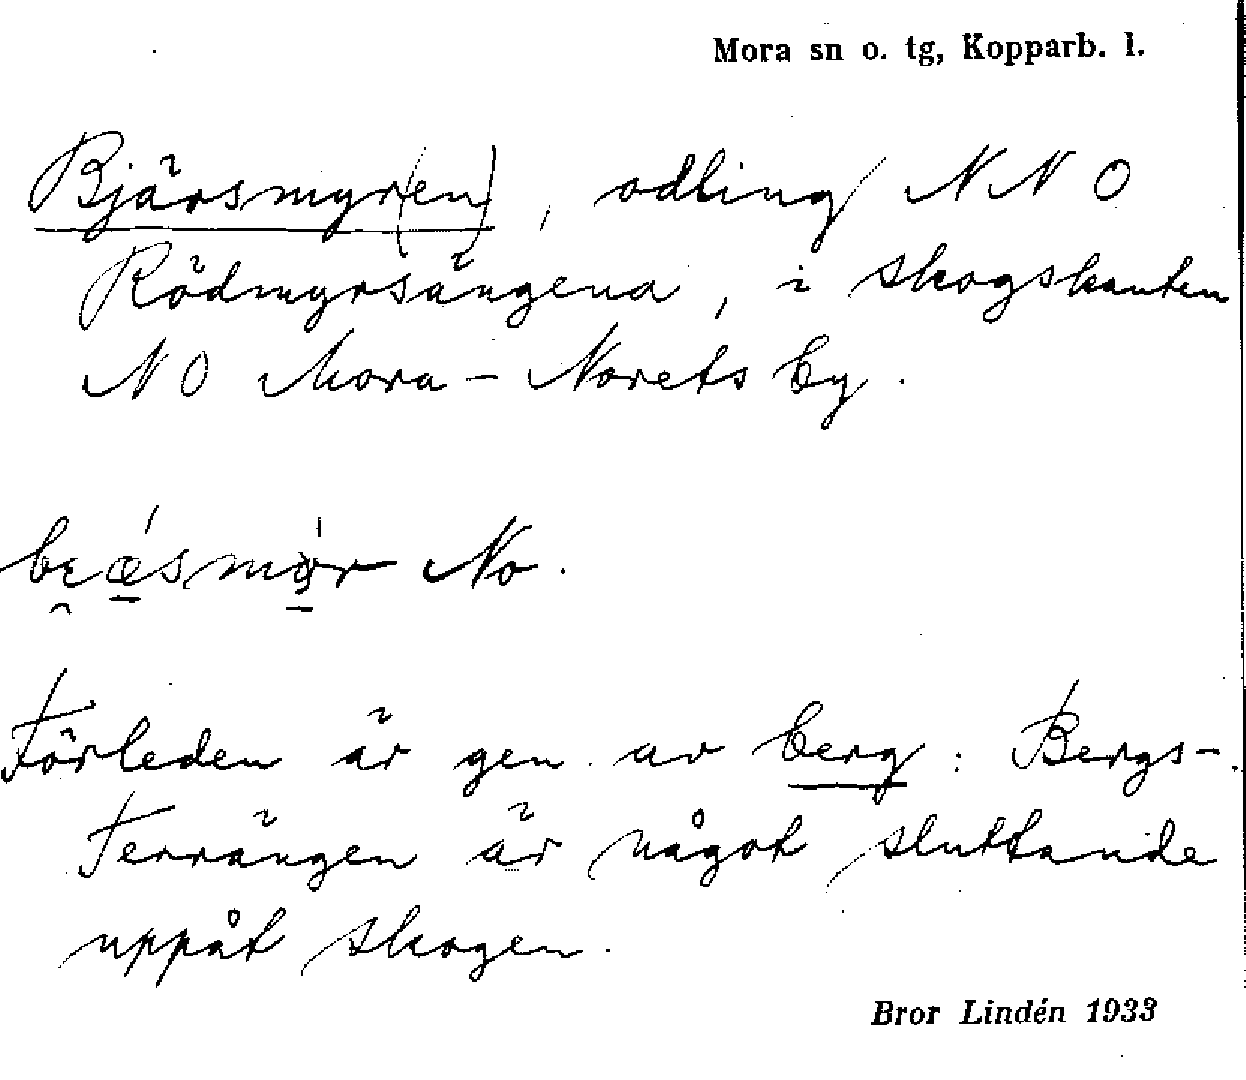 Mora sn o. tg, Kopparb. l.
Bjärsmyr(en), odling NNO
Rödmyrsängena, i skogskanten
NO Mora-Norets by.
No.
Förleden är gen. av berg: Bergs-.
Terrängen är något sluttande
uppåt skogen.
Bror Lindén 1933